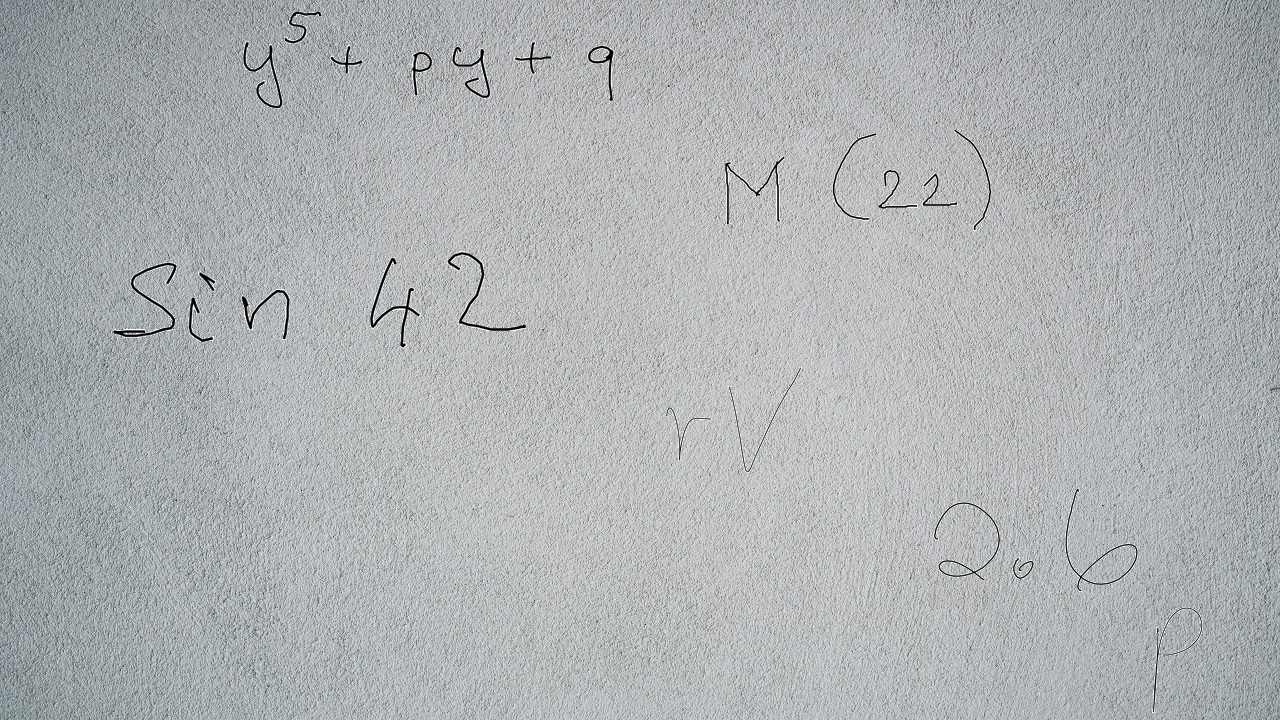 y⁵ + py + q
M (22)
Sin 42
rV
2.6
p